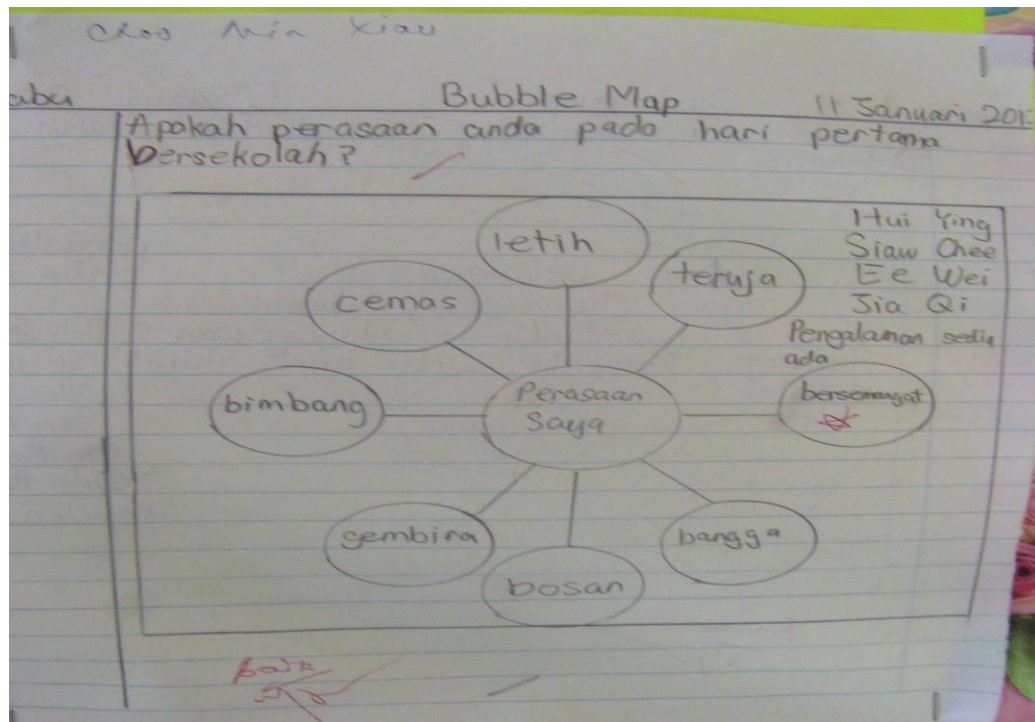 Choo Min Xiau
abu
Bubble Map
11 Januari 201
Apakah perasaan anda pada hari pertama
bersekolah?
Hui Ying
Siaw Chee
Ee Wei
Jia Qi
Pengalaman sedia
ada
letih
teruja
cemas
bimbang
Perasaan
Saya
bersemangat
gembira
bangga
bosan
baik